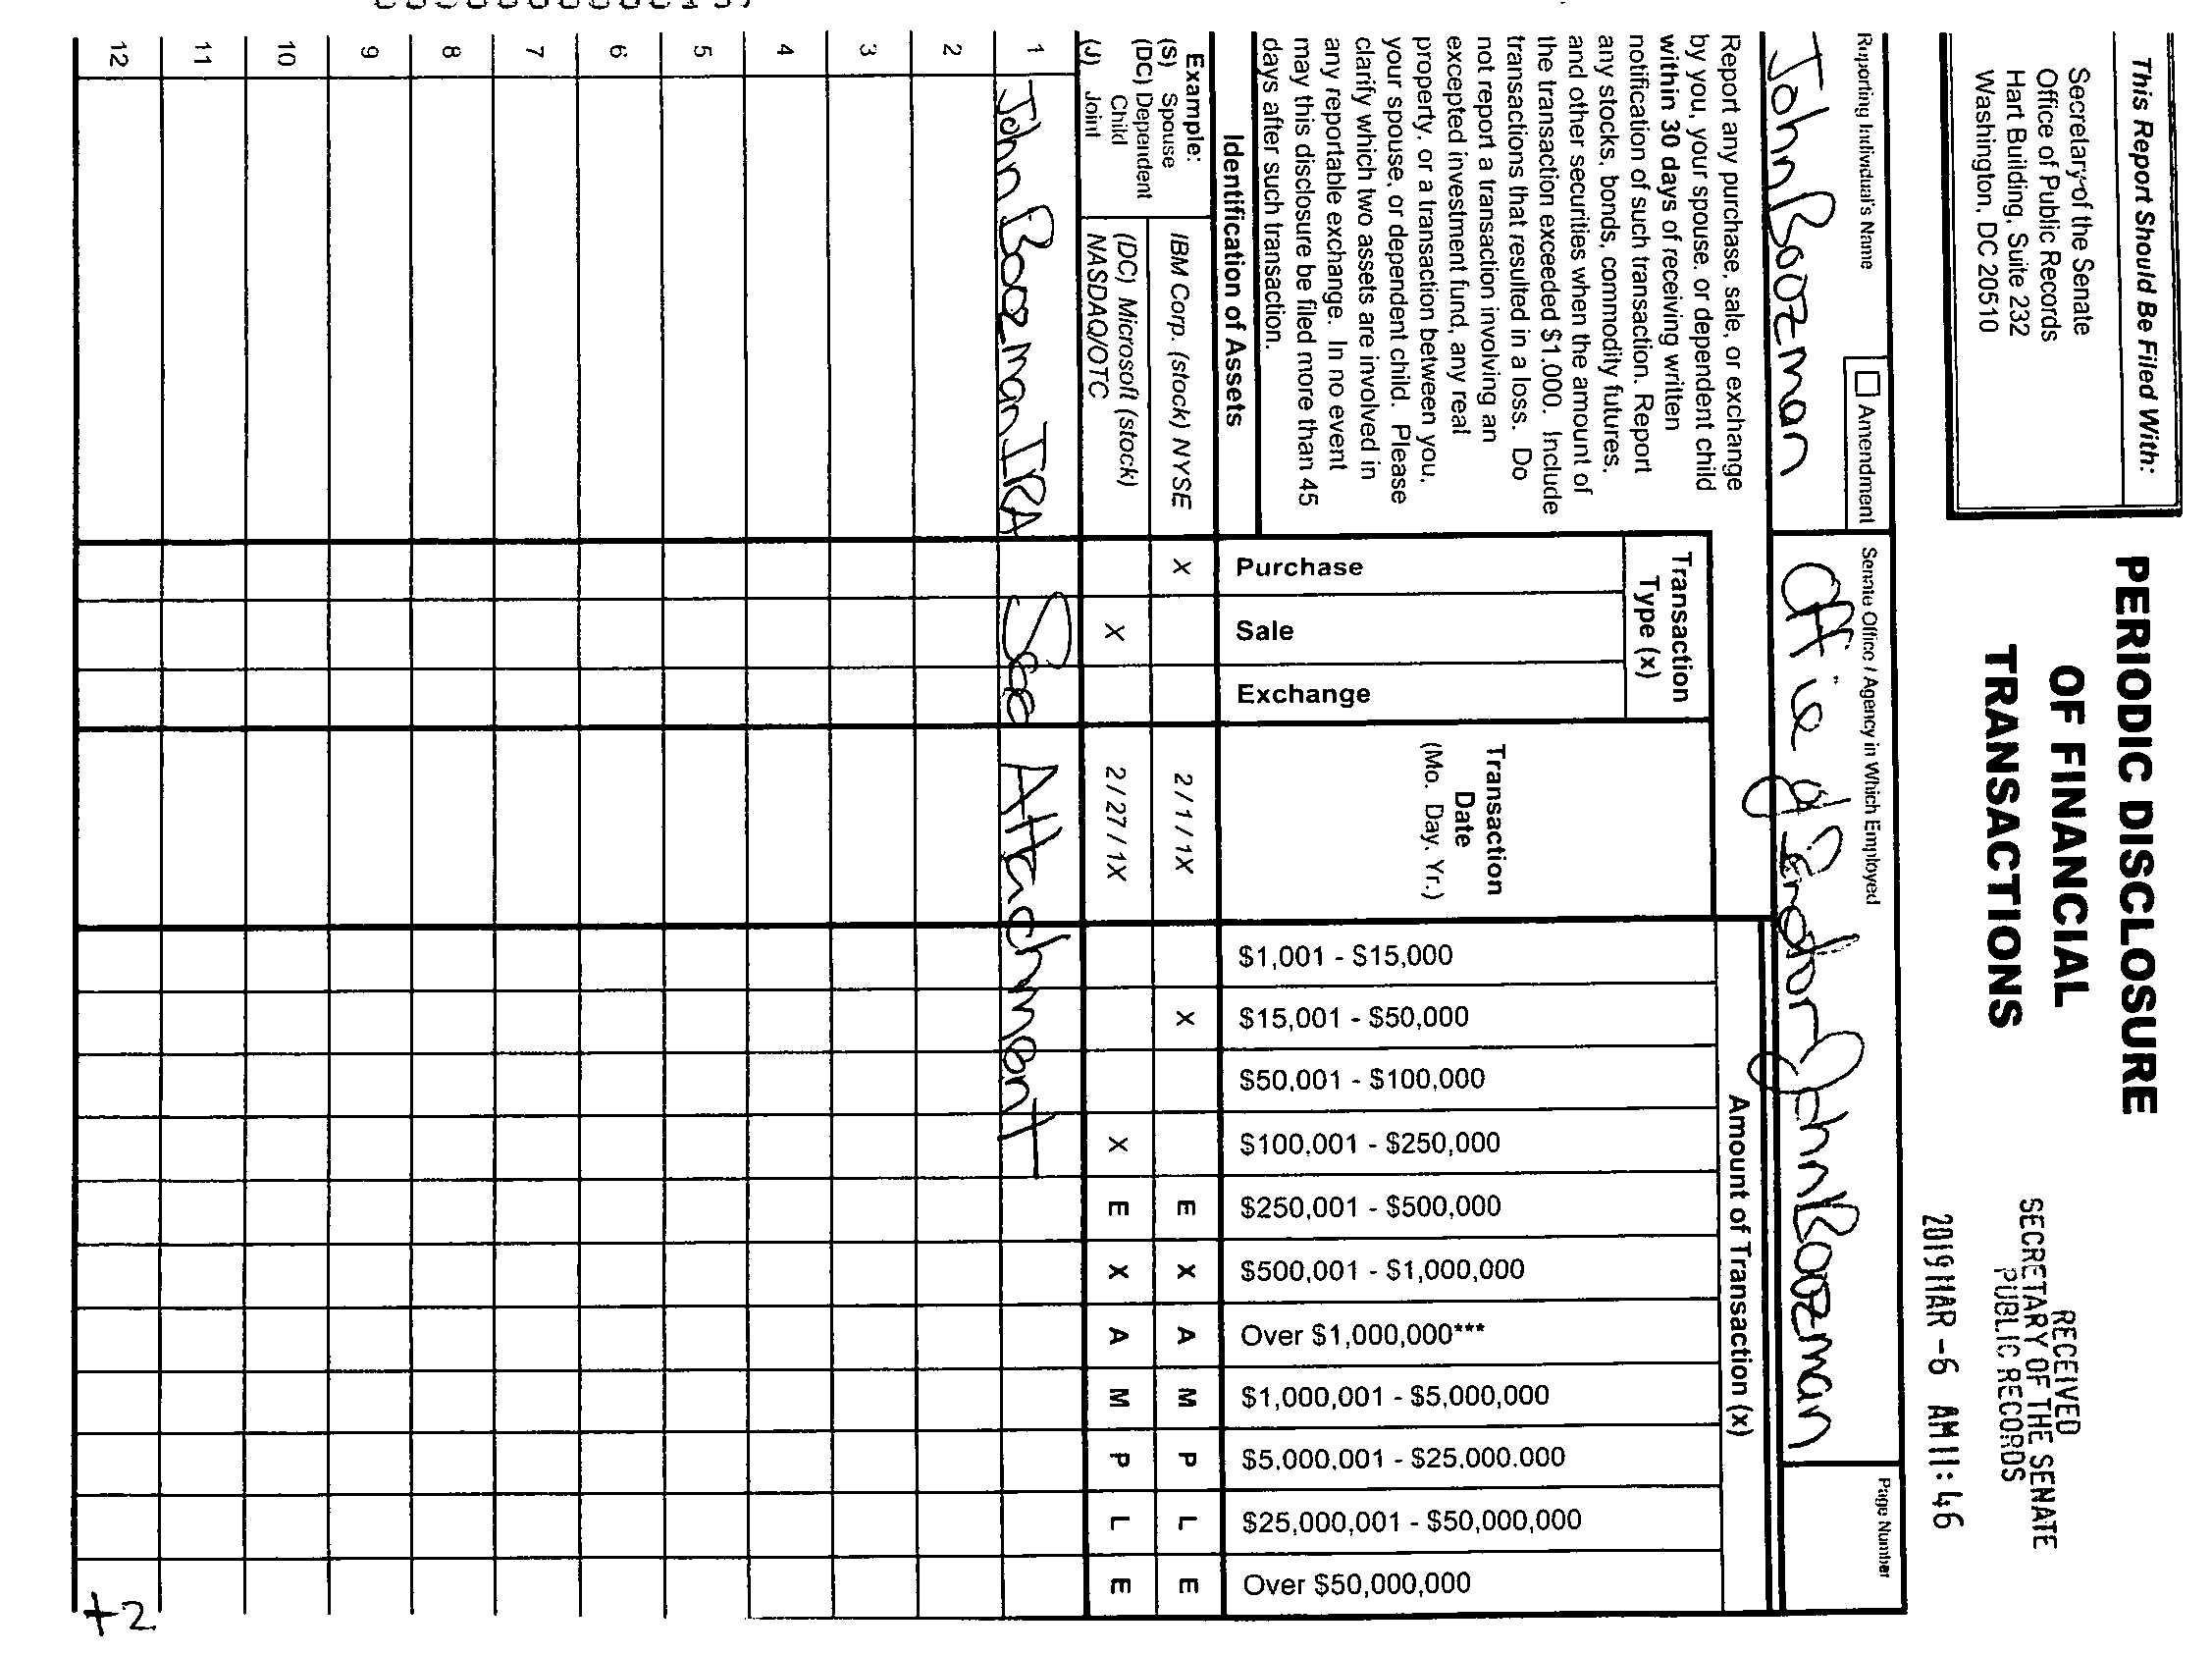 This Report Should Be Filed With:
Secretary of the Senate
Office of Public Records
Hart Building, Suite 232
Washington, DC 20510
PERIODIC DISCLOSURE
OF FINANCIAL
TRANSACTIONS
RECEIVED
SECRETARY OF THE SENATE
PUBLIC RECORDS
2019 MAR -6 AM 11:46
Reporting Individual's Name
Amendment
Senate Office / Agency in Which Employed
Page Number
John Boozman
Office of Senator John Boozman
Report any purchase, sale, or exchange
by you, your spouse, or dependent child
within 30 days of receiving written
notification of such transaction. Report
any stocks, bonds, commodity futures,
and other securities when the amount of
the transaction exceeded $1,000. Include
transactions that resulted in a loss. Do
not report a transaction involving an
excepted investment fund, any real
property, or a transaction between you,
your spouse, or dependent child. Please
clarify which two assets are involved in
any reportable exchange. In no event
may this disclosure be filed more than 45
days after such transaction.
Identification of Assets
Transaction
Type (x)
Purchase
Sale
Exchange
Transaction
Date
(Mo. Day. Yr.)
Amount of Transaction (x)
$1,001 - $15,000
$15,001 - $50,000
$50,001 - $100,000
$100,001 - $250,000
$250,001 - $500,000
$500,001 - $1,000,000
Over $1,000,000***
$1,000,001 - $5,000,000
$5,000,001 - $25,000,000
$25,000,001 - $50,000,000
Over $50,000,000
Example:
(S) Spouse
(DC) Dependent
Child
(J) Joint
IBM Corp. (stock) NYSE X 2/1/1X X E X A M P L E
(DC) Microsoft (stock)
NASDAQ/OTC X 2/27/1X X E X A M P L E
1 John Boozman IRA See Attachment
2
3
4
5
6
7
8
9
10
11
12
+2